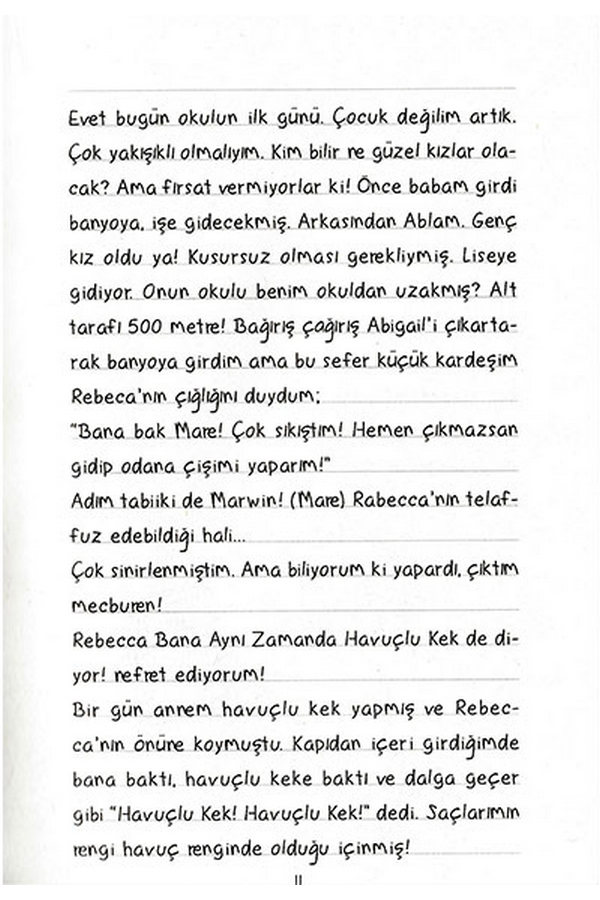 Evet bugün okulun ilk günü. Çocuk değilim artık.
Çok yakışıklı olmalıyım. Kim bilir ne güzel kızlar ola-
cak? Ama fırsat vermiyorlar ki! Önce babam girdi
banyoya, işe gidecekmiş. Arkasından Ablam. Genç
kız oldu ya! Kusursuz olması gerekliymiş. Liseye
gidiyor. Onun okulu benim okuldan uzakmış? Alt
tarafı 500 metre! Bağırış çağırış Abigail'i çıkarta-
rak banyoya girdim ama bu sefer küçük kardeşim
Rebeca'nın çığlığını duydum;
"Bana bak Mare! Çok sıkıştım! Hemen çıkmazsan
gidip odana çişimi yaparım!"
Adım tabiiki de Marwin! (Mare) Rabecca'nın telaf-
fuz edebildiği hali...
Çok sinirlenmiştim. Ama biliyorum ki yapardı, çıktım
mecburen!
Rebecca Bana Aynı Zamanda Havuçlu Kek de di-
yor! nefret ediyorum!
Bir gün annem havuçlu kek yapmış ve Rebec-
ca'nın önüne koymuştu. Kapıdan içeri girdiğimde
bana baktı, havuçlu keke baktı ve dalga geçer
gibi "Havuçlu Kek! Havuçlu Kek!" dedi. Saçlarımın
rengi havuç renginde olduğu içinmiş!
11